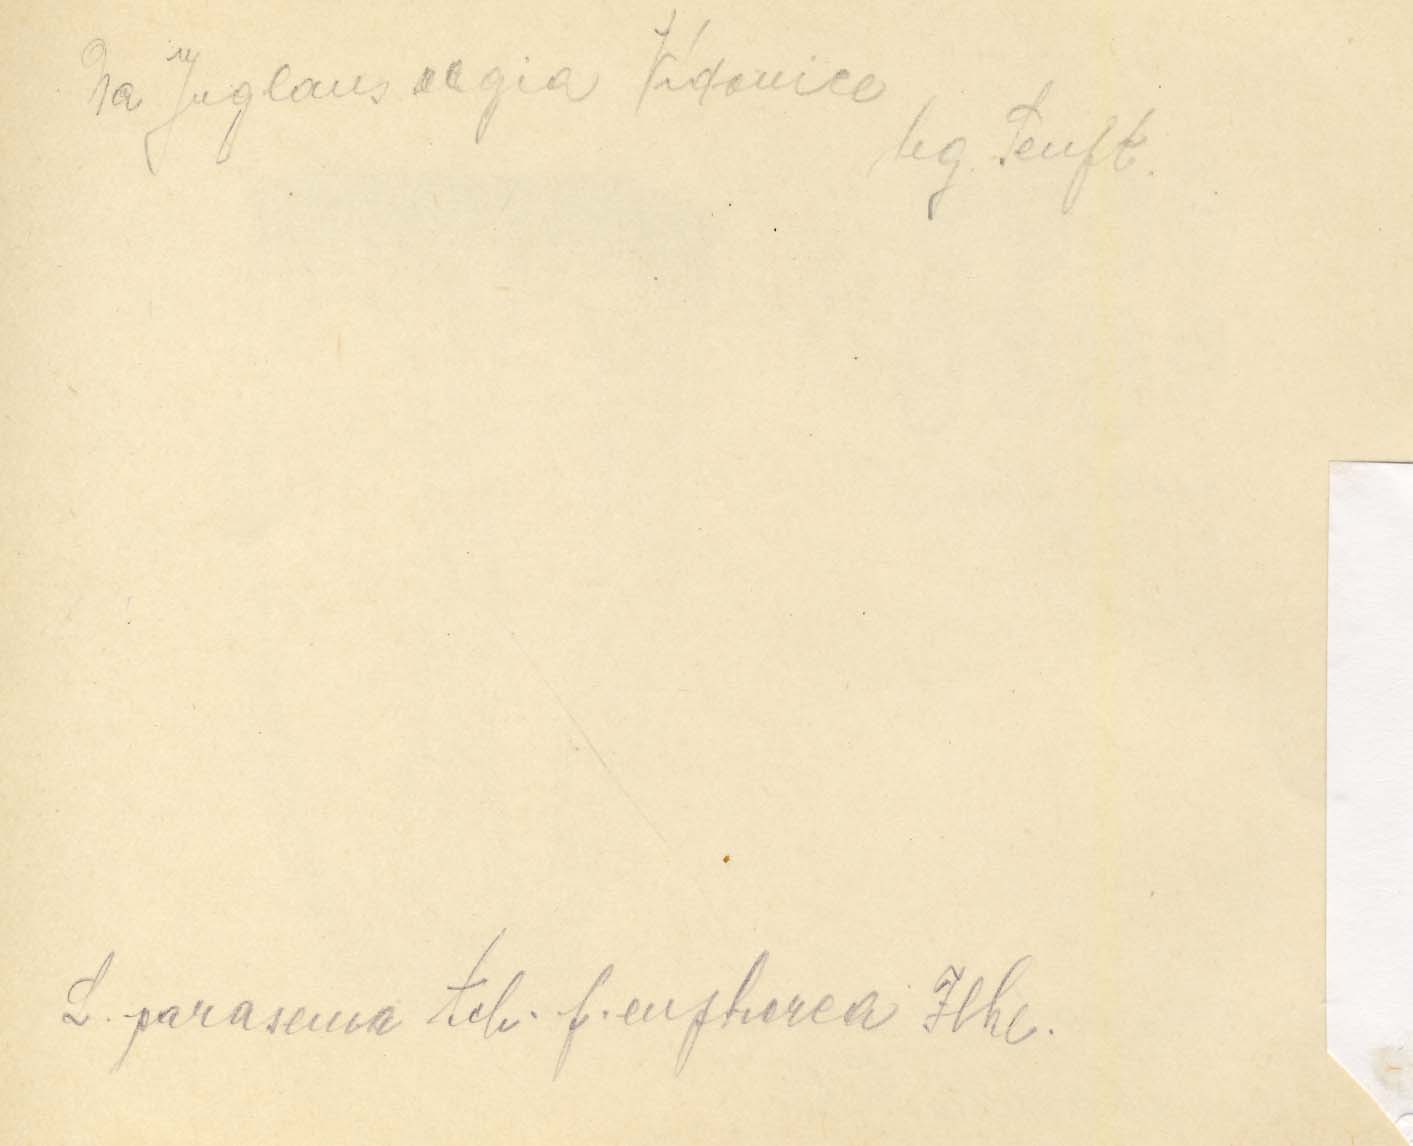 Na Juglans regia Vidovice
lg. Senft.
L. parasema Ach. f. euphorea Flke.